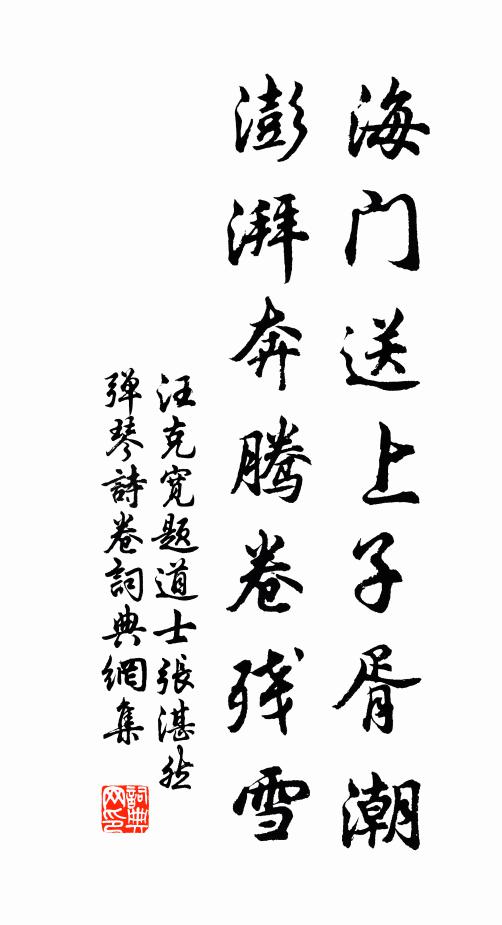 海门送上子胥潮
澎湃奔腾卷残雪
汪克宽题道士張湛然
弹琴詩卷詞典網集
詞典
网印